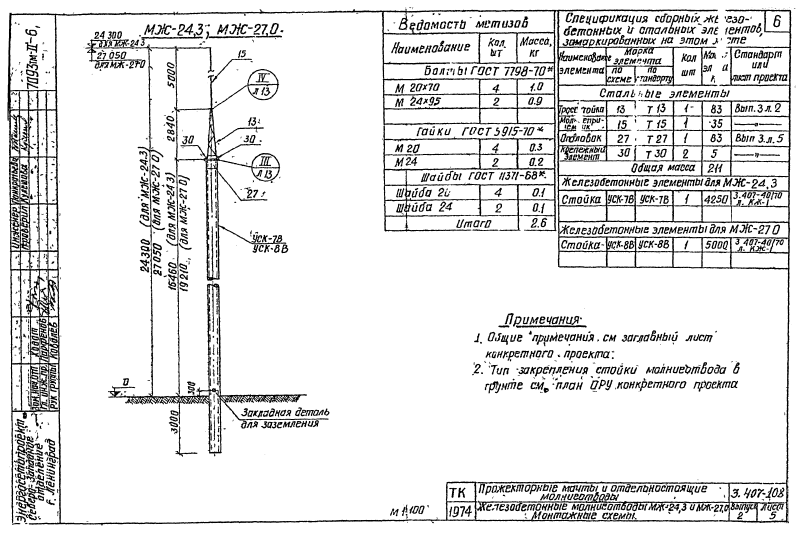 МЖС-24,3; МЖС-27,0
24 300
для МЖ-24.3
27 050
для МЖ-27.0
5000
2840
24 300 (для МЖ-24.3)
27 050 (для МЖ-27.0)
16460 (для МЖ-24.3)
19 210 (для МЖ-27.0)
15
IV
Л 13
13
30 30
III
Л 13
27
УСК-7В
УСК-8В
0
500
3000
Закладная деталь
для заземления
М 1:100
Ведомость метизов
Наименование Кол. шт Масса, кг
Болты ГОСТ 7798-70*
М 20×70 4 1.0
М 24×95 2 0.9
Гайки ГОСТ 5915-70*
М 20 4 0.3
М 24 2 0.2
Шайбы ГОСТ 11371-68*
Шайба 20 4 0.1
Шайба 24 2 0.1
Итого 2.6
6
Спецификация сборных железо-
бетонных и стальных элементов,
замаркированных на этом листе
Марка элемента
по схеме по стандарту
Кол шт
Стандарт или лист проекта
Стальные элементы
13 Т 13 1 83 Вып. 3 л. 2
15 Т 15 1 35 —"—
Оголовок 27 Т 27 1 83 Вып 3 л. 5
Крепежный элемент 30 Т 30 2 5 —"—
Общая масса 211
Железобетонные элементы для МЖ-24,3
Стойка УСК-7В УСК-7В 1 4250 3.407-40/70 л. КЖ-1
Железобетонные элементы для МЖ-27.0
Стойка УСК-8В УСК-8В 1 5000 3 407-40/70 л. КЖ-1
Примечания:
1. Общие примечания см заглавный лист
конкретного проекта;
2. Тип закрепления стойки молниеотвода в
грунте см. план ОРУ конкретного проекта
ТК
1974
Прожекторные мачты и отдельностоящие
молниеотводы
3. 407-108
Железобетонные молниеотводы МЖ-24,3 и МЖ-27,0
Монтажные схемы.
Выпуск 2
Лист 5
7093тм-II-6,
Энергосетьпроект
Северо-Западное
отделение
г. Ленинград